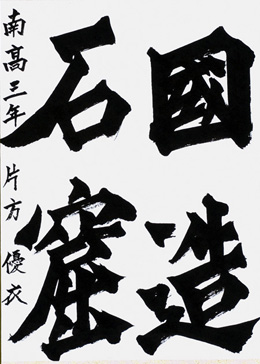 國造
石窟
南髙三年 片方優衣